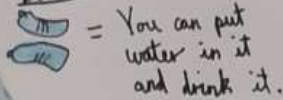 = You can put
water in it
and drink it.